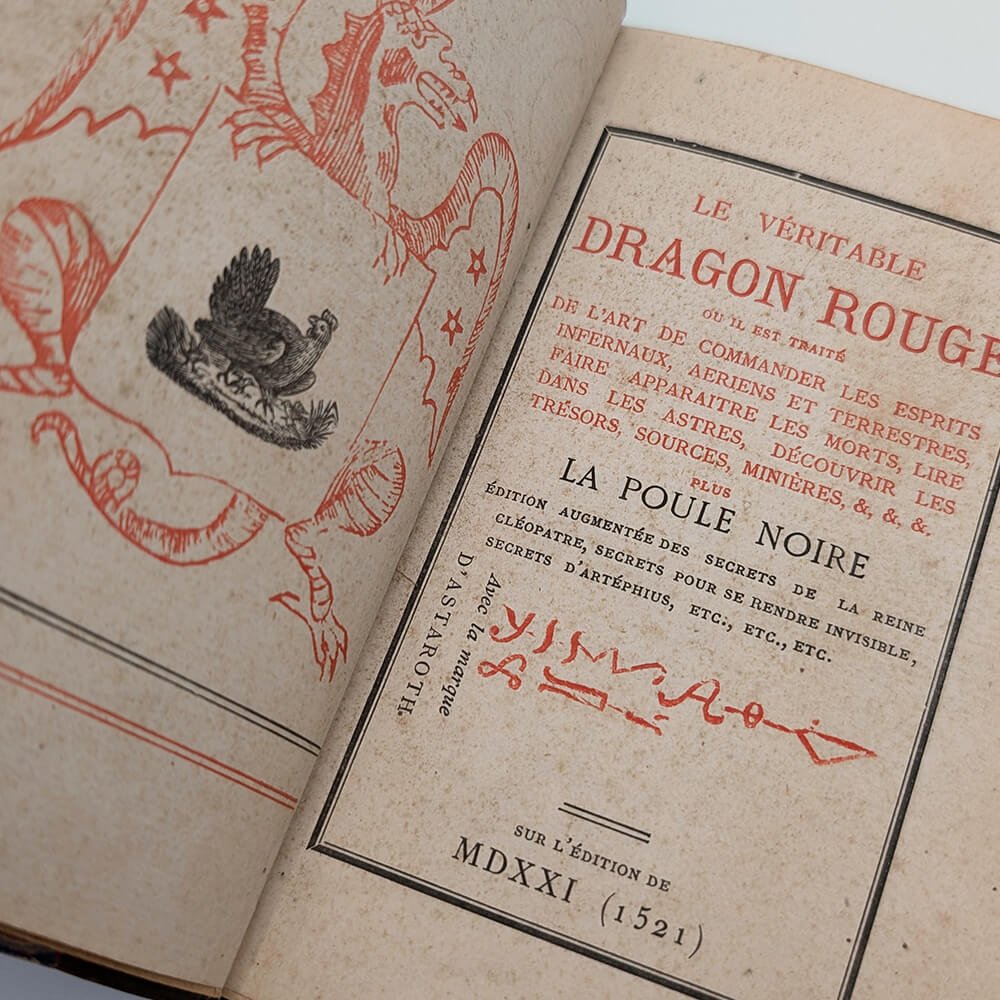 LE VÉRITABLE
DRAGON ROUGE
OU IL EST TRAITÉ
DE L'ART DE COMMANDER LES ESPRITS
INFERNAUX, AERIENS ET TERRESTRES,
FAIRE APPARAITRE LES MORTS, LIRE
DANS LES ASTRES, DÉCOUVRIR LES
TRÉSORS, SOURCES, MINIÈRES, &, &, &.
PLUS
LA POULE NOIRE
ÉDITION AUGMENTÉE DES SECRETS DE LA REINE
CLÉOPATRE, SECRETS POUR SE RENDRE INVISIBLE,
SECRETS D'ARTÉPHIUS, ETC., ETC., ETC.
Avec la marque
D'ASTAROTH.
SUR L'ÉDITION DE
MDXXI (1521)